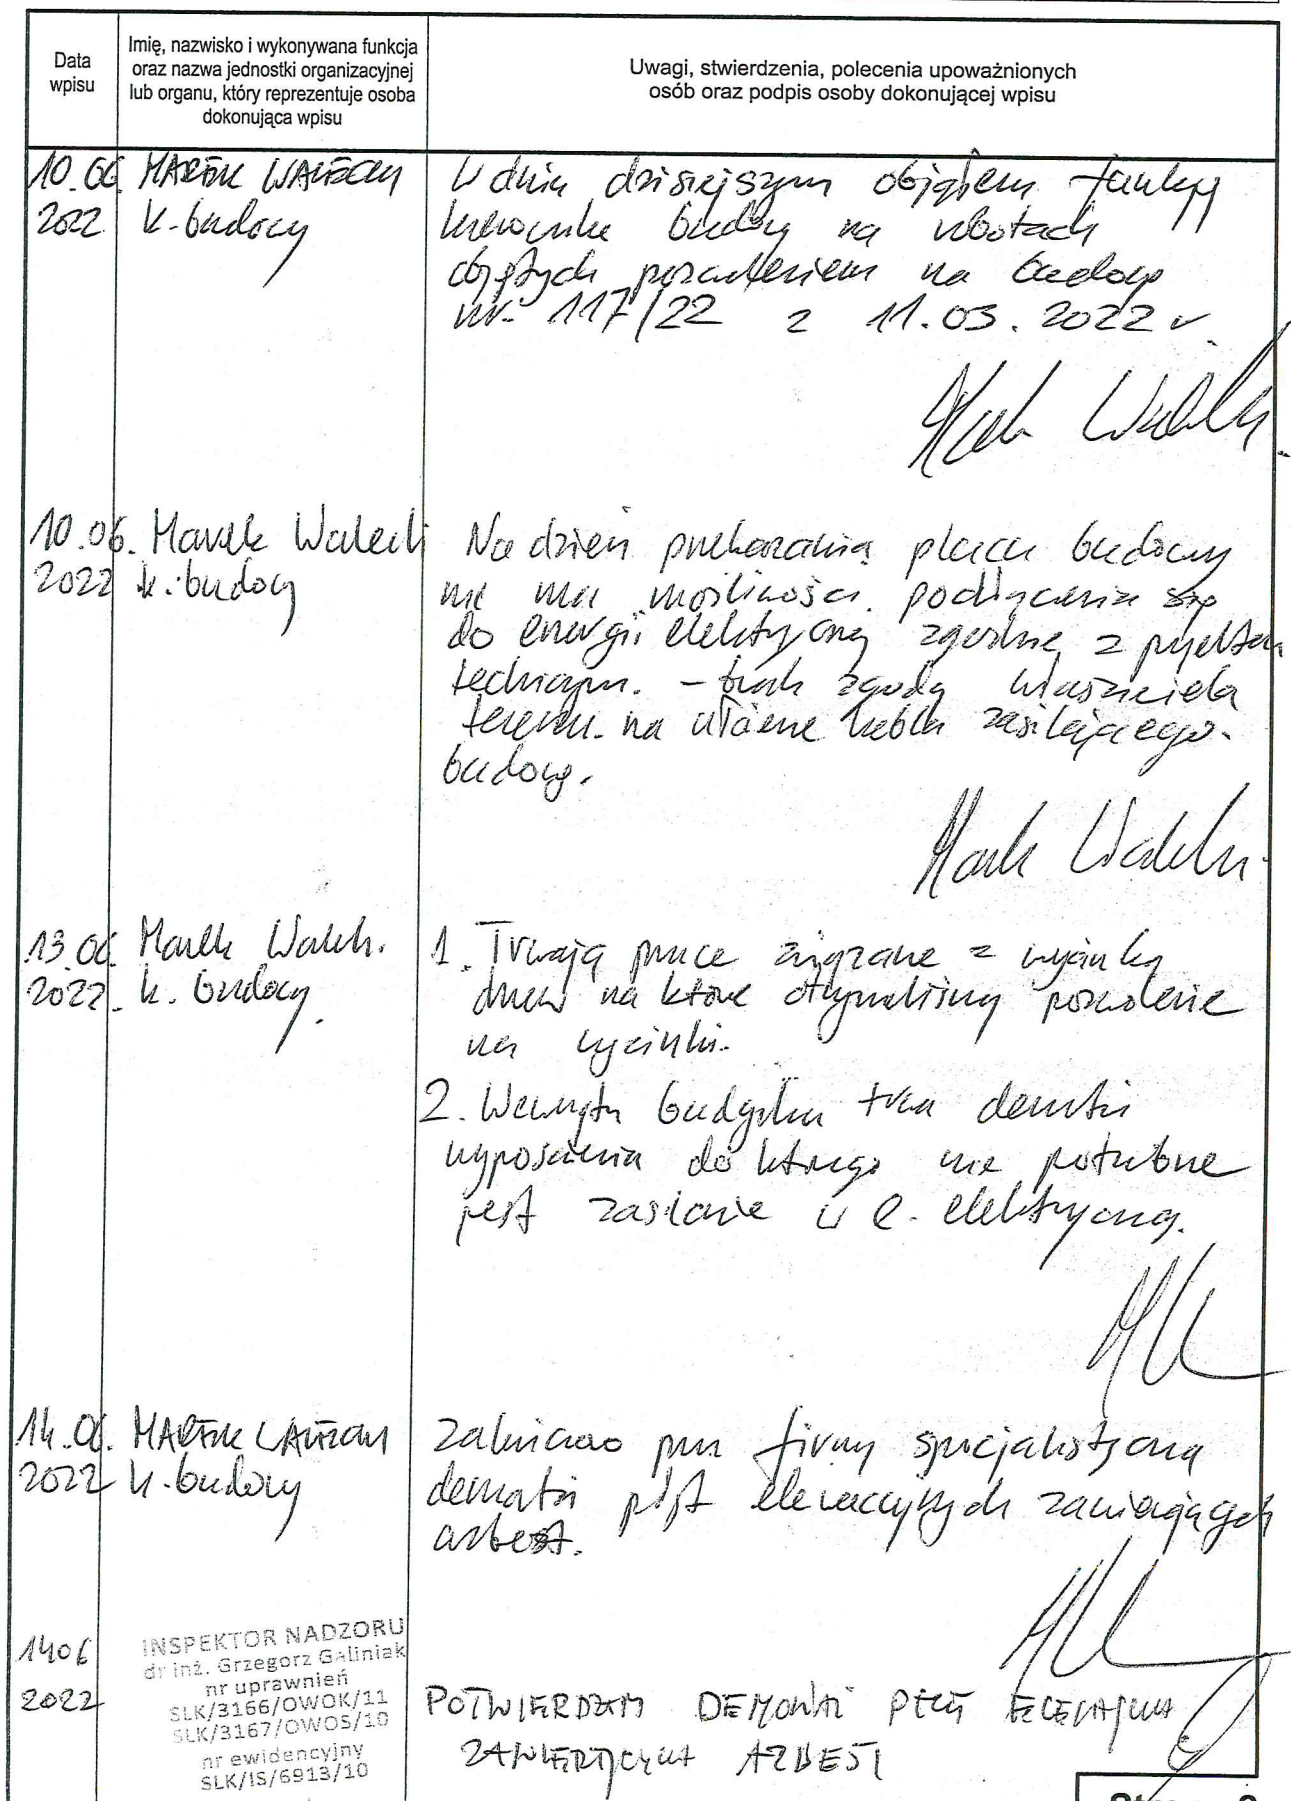 Data
wpisu
Imię, nazwisko i wykonywana funkcja
oraz nazwa jednostki organizacyjnej
lub organu, który reprezentuje osoba
dokonująca wpisu
Uwagi, stwierdzenia, polecenia upoważnionych
osób oraz podpis osoby dokonującej wpisu
10.06. MAREK WALECKI
2022 k. budowy
W dniu dzisiejszym objąłem funkcję
kierownika budowy na robotach
objętych pozwoleniem na budowę
nr. 117/22 z 11.03.2022 r.
10.06. Marek Walecki
2022 k. budowy
Na dzień przekazania placu budowy
nie ma możliwości podłączenia się
do energii elektrycznej zgodnie z projektem
technicznym. - brak zgody właściciela
terenu na ułożenie kabla zasilającego
budowę.
Marek Walecki
13.06. Marek Walecki
2022. k. budowy
1. Trwają prace związane z wycinką
drzew na które otrzymaliśmy pozwolenie
na wycinki.
2. Wewnątrz budynku trwa demontaż
wyposażenia do którego nie potrzebne
jest zasilanie w e. elektryczną.
14.06. MAREK WALECKI
2022 k. budowy
Zakończono przez firmę specjalistyczną
demontaż płyt elewacyjnych zawierających
azbest.
14 06
2022
INSPEKTOR NADZORU
dr inż. Grzegorz Galiniak
nr uprawnień
SLK/3166/OWOK/11
SLK/3167/OWOS/10
nr ewidencyjny
SLK/IS/6913/10
POTWIERDZAM DEMONTAŻ PŁYT ELEWACYJNYCH
ZAWIERAJĄCYCH AZBEST